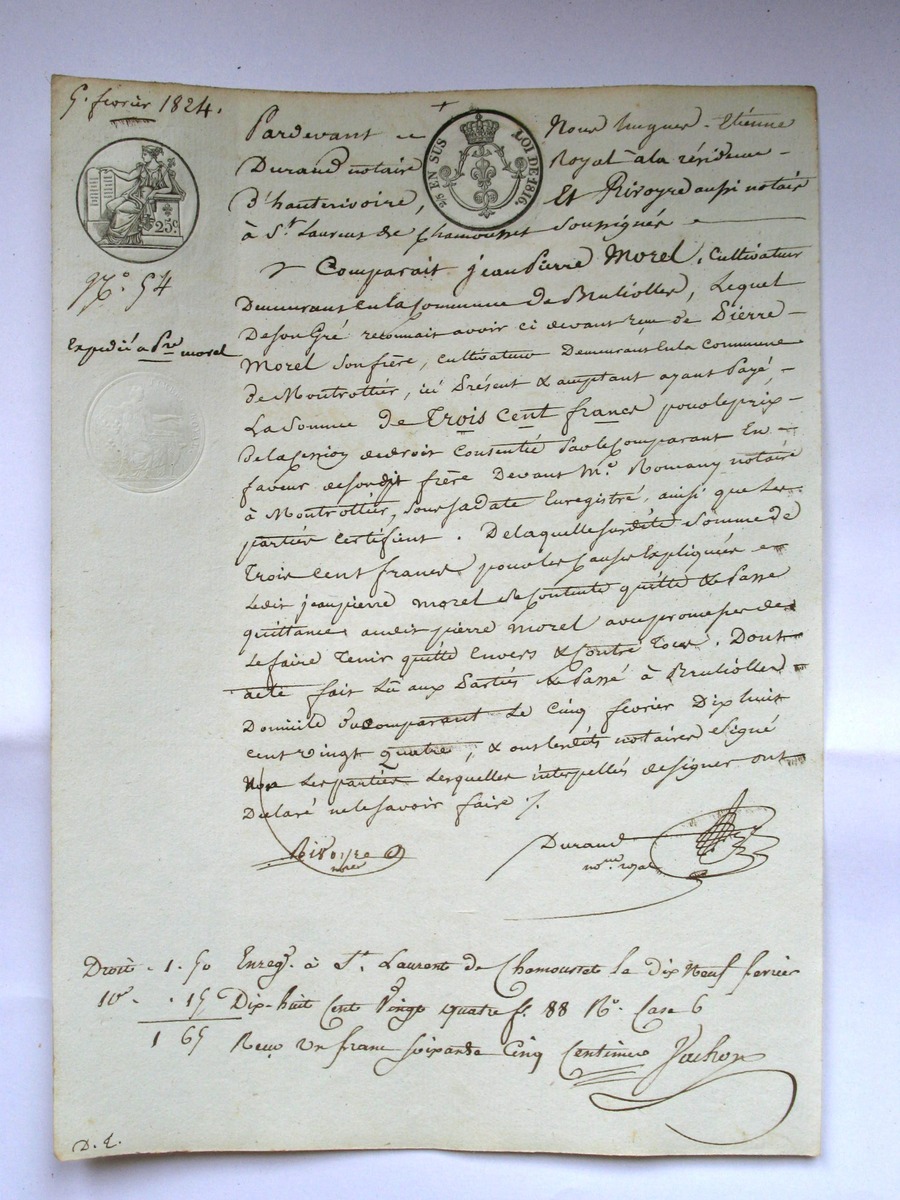 5. fevrier 1824.
2/5 EN SUS
LOI DE 1816
25c
N.° 54
Expedié a Pre morel
Pardevant Nous hugues - Etiénne
Durand notaire Royal à la résidence -
d'hauterivoire, Et Rivoyre aussi notaire
à St. Laurent de Chamousset Soussignés
Comparait jean Pierre Morel, Cultivateur
Demeurant en la Commune de Brulioller, Lequel
De son Gré reconnait avoir ci devant reçu de Pierre -
Morel son frère, Cultivateur Demeurant En la Commune
de Montrottier, ici Présent & acceptant ayant Payé, -
La Somme de Trois Cent francs pour le prix -
De la Cession de droit Consentie Par le Comparant En -
faveur de son dit frère Devant M.e Romany notaire
à Montrottier, sous sa date Enregistré, ainsi que Les
parties Certifient. De laquelle susdite Somme de
Trois Cent francs pour les Causes Expliquées
Ledit jean pierre morel Se Contente quitte & Passe
quittance, audit pierre morel avec promesse de
Le faire Tenir quitte Envers & Contre Tous. Dont
acte fait Lu aux Parties & Passé à Brulioller
Domicile du Comparant Le Cinq fevrier Dix huit
Cent vingt quatre, & ont lesdits notaires Signé
Non Les parties Lesquelles interpellés de signer ont
Déclaré ne le savoir faire /.
Rivoyre
nore
Durand
nore royal
Droit . 1. 50 Enreg. à St. Laurent de Chamousset le dix Neuf fevrier
10e . . 15 Dix-huit Cent Vingt quatre f. 88 R.o Case 6
1 65 Reçu Un franc Soixante Cinq Centimes
D. L.